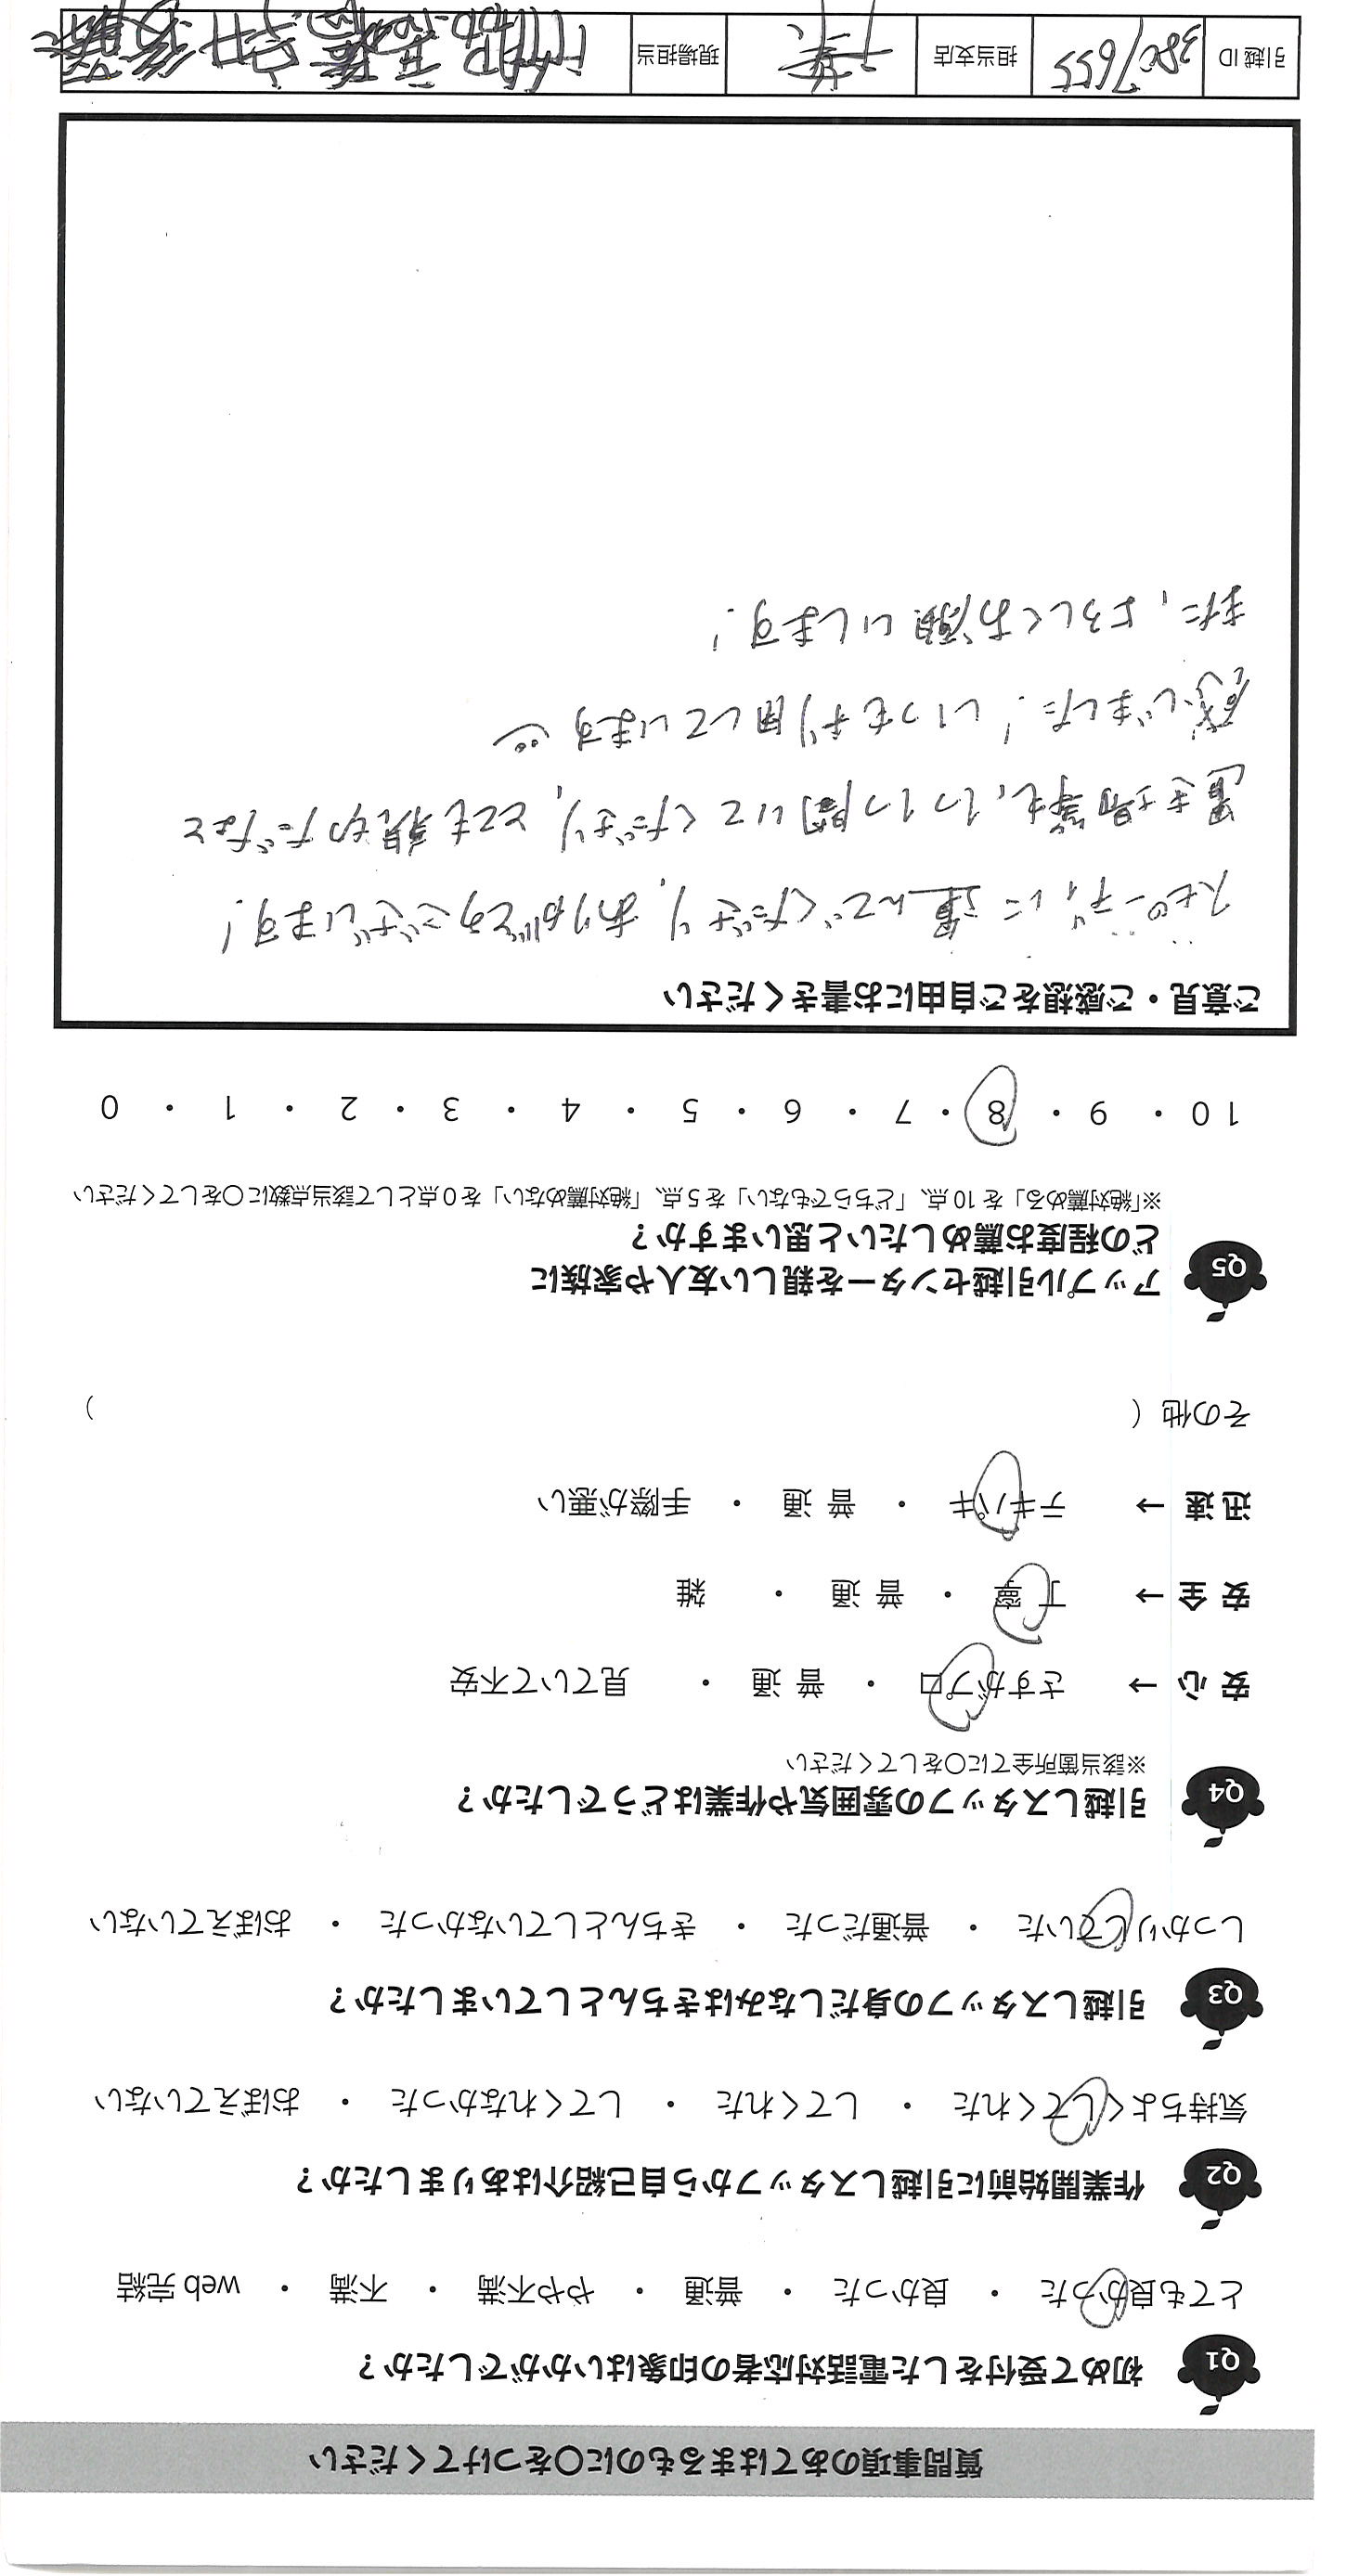 質問事項のあてはまるものに〇をつけてください
Q1 初めて受付をした電話対応者の印象はいかがでしたか？
とても良かった ・ 良かった ・ 普通 ・ やや不満 ・ 不満 ・ web 完結
Q2 作業開始前に引越しスタッフから自己紹介はありましたか？
気持ちよくしてくれた ・ してくれた ・ してくれなかった ・ おぼえていない
Q3 引越しスタッフの身だしなみはきちんとしていましたか？
しっかりしていた ・ 普通だった ・ きちんとしていなかった ・ おぼえていない
Q4 引越しスタッフの雰囲気や作業はどうでしたか？
※該当箇所全てに〇をしてください
安 心 → さすがプロ ・ 普 通 ・ 見ていて不安
安 全 → 丁 寧 ・ 普 通 ・ 雑
迅 速 → テキパキ ・ 普 通 ・ 手際が悪い
その他（ ）
Q5 アップル引越センターを親しい友人や家族に
どの程度お薦めしたいと思いますか？
※「絶対薦める」を 10 点、「どちらでもない」を 5 点、「絶対薦めない」を 0 点として該当点数に〇をしてください
10 ・ 9 ・ 8 ・ 7 ・ 6 ・ 5 ・ 4 ・ 3 ・ 2 ・ 1 ・ 0
ご意見・ご感想をご自由にお書きください
スピーディに運んでくださり、ありがとうございます！
置き場等も、1つ1つ聞いてくださり、とても親切だなと
感じました！いつも利用しています
また、よろしくお願いします！
引越 ID 3807655 担当支店 千葉 現場担当